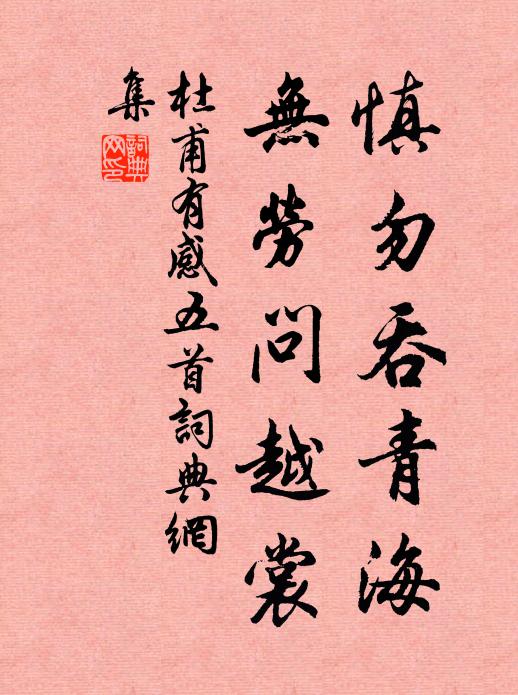 慎勿吞青海
無勞問越裳
杜甫有感五首詞典網
集
詞典網印